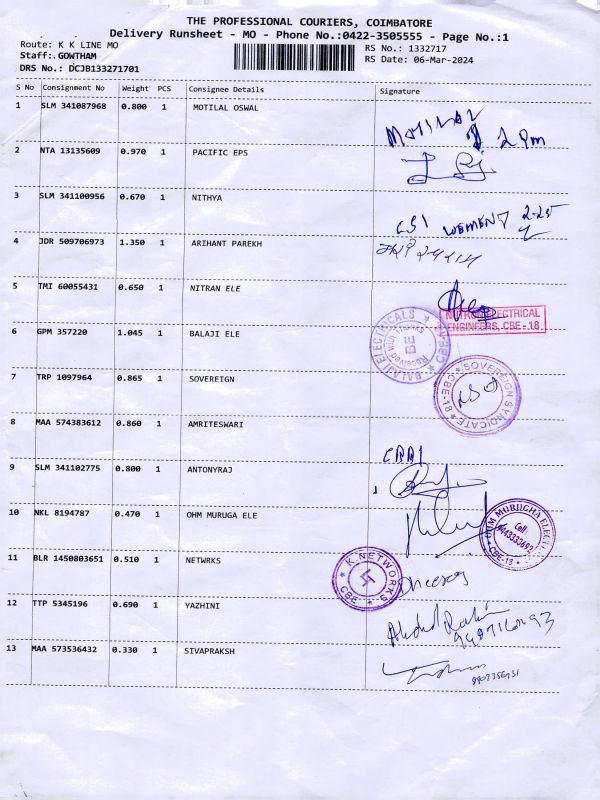 THE PROFESSIONAL COURIERS, COIMBATORE
Delivery Runsheet - MO - Phone No.:0422-3505555 - Page No.:1
Route: K K LINE MO
RS No.: 1332717
Staff:.GOWTHAM
RS Date: 06-Mar-2024
DRS No.: DCJB133271701
S No Consignment No Weight PCS Consignee Details Signature
1 SLM 341087968 0.800 1 MOTILAL OSWAL
MOTILAL
2 pm
2 NTA 13135609 0.970 1 PACIFIC EPS
3 SLM 341100956 0.670 1 NITHYA
CSI WOMENS 2-25
4 JDR 509706973 1.350 1 ARIHANT PAREKH
5 TMI 60055431 0.650 1 NITRAN ELE
ELECTRICAL
ENGINEERS, CBE-18.
6 GPM 357220 1.045 1 BALAJI ELE
BALAJI ELECTRICALS
CBE
7 TRP 1097964 0.865 1 SOVEREIGN
SOVEREIGN SYNDICATE
CBE-18
8 MAA 574383612 0.860 1 AMRITESWARI
9 SLM 341102775 0.800 1 ANTONYRAJ
10 NKL 8194787 0.470 1 OHM MURUGA ELE
OHM MURUGHA ELECT
Cell:
CBE-18
11 BLR 1450803651 0.510 1 NETWRKS
K NETWORKS
CBE
12 TTP 5345196 0.690 1 YAZHINI
13 MAA 573536432 0.330 1 SIVAPRAKSH